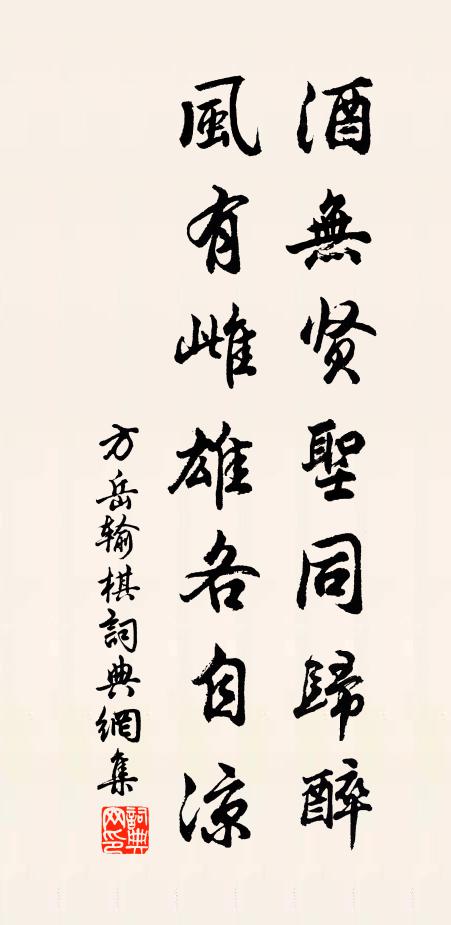 酒無贤聖同歸醉
風有雌雄各自凉
方岳输棋詞典網集
詞典网印